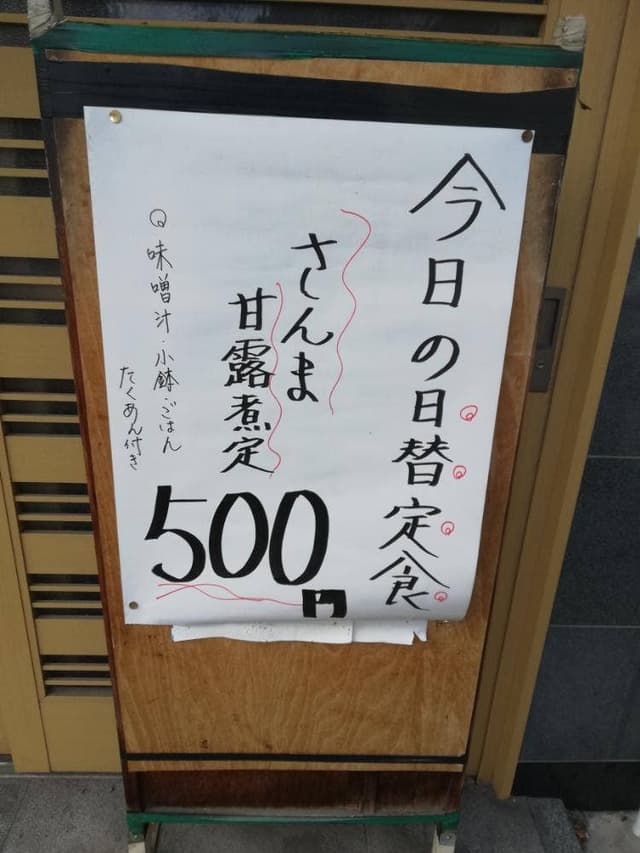 今日の日替定食
さんま
甘露煮定
500円
◎味噌汁・小鉢・ごはん
たくあん付き